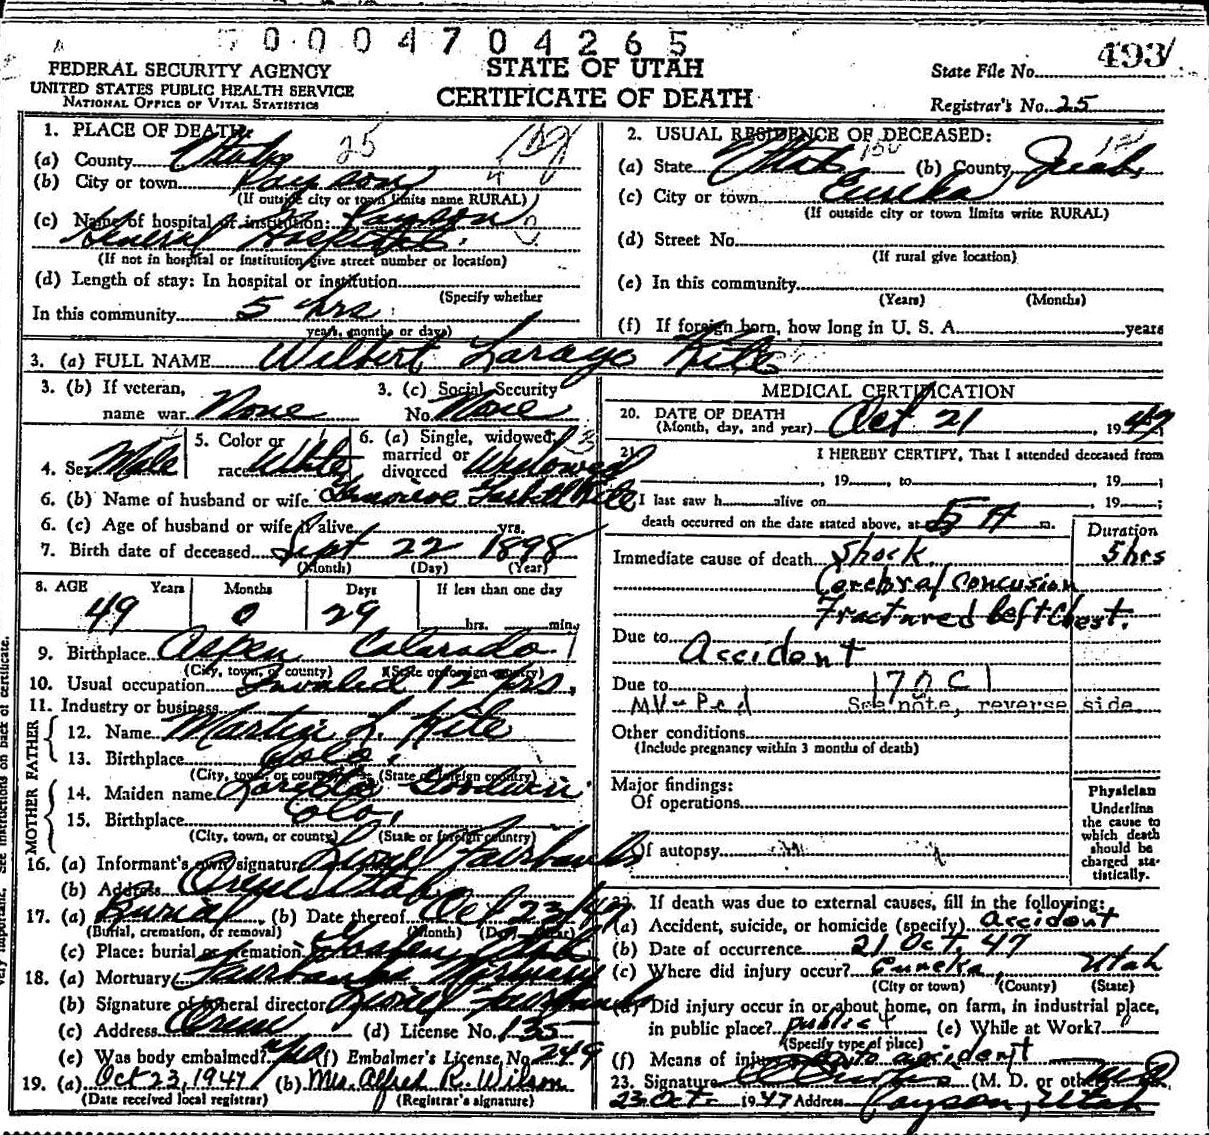 0004704265
FEDERAL SECURITY AGENCY
UNITED STATES PUBLIC HEALTH SERVICE
NATIONAL OFFICE OF VITAL STATISTICS
STATE OF UTAH
CERTIFICATE OF DEATH
State File No. 493
Registrar's No. 25
1. PLACE OF DEATH:
(a) County Utah 25
(b) City or town Payson
(If outside city or town limits name RURAL)
(c) Name of hospital or institution: Payson
General Hospital.
(If not in hospital or institution give street number or location)
(d) Length of stay: In hospital or institution
(Specify whether
In this community 5 hrs.
years, months or days)
2. USUAL RESIDENCE OF DECEASED:
(a) State Utah (b) County Juab
(c) City or town Eureka
(If outside city or town limits write RURAL)
(d) Street No.
(If rural give location)
(e) In this community
(Years) (Months)
(f) If foreign born, how long in U. S. A. years
3. (a) FULL NAME Wilbert Kile
3. (b) If veteran,
name war None
3. (c) Social Security
No. None
4. Sex Male
5. Color or
race White
6. (a) Single, widowed,
married or
divorced Widowed
6. (b) Name of husband or wife Kile
6. (c) Age of husband or wife if alive yrs.
7. Birth date of deceased Sept 22 1898
(Month) (Day) (Year)
8. AGE Years Months Days If less than one day
49 0 29 hrs. min.
9. Birthplace Aspen Colorado
(City, town, or county) (State or foreign country)
10. Usual occupation Invalid 12 yrs.
11. Industry or business
FATHER
12. Name Martin L. Kile
13. Birthplace Colo.
(City, town, or county) (State or foreign country)
MOTHER
14. Maiden name Goodwin
15. Birthplace Colo.
(City, town, or county) (State or foreign country)
16. (a) Informant's own signature Lionel Fairbanks
(b) Address Utah
17. (a) Burial (b) Date thereof Oct 23/47
(Burial, cremation, or removal) (Month) (Day) (Year)
(c) Place: burial or cremation Utah
18. (a) Mortuary Fairbanks Mortuary
(b) Signature of funeral director Lionel Fairbanks
(c) Address Orem (d) License No. 135
(e) Was body embalmed? Yes (f) Embalmer's License No. 249
19. (a) Oct 23, 1947 (b) Mrs. Alfred R. Wilson
(Date received local registrar) (Registrar's signature)
MEDICAL CERTIFICATION
20. DATE OF DEATH
(Month, day, and year) Oct 21, 1947;
21. I HEREBY CERTIFY, That I attended deceased from
, 19 , to , 19 ;
I last saw h alive on , 19 ;
death occurred on the date stated above, at 5 A m.
Duration
Immediate cause of death Shock 5 hrs
Cerebral Concusion
Fractured Left Chest.
Due to Accident
Due to 170C1
MV-Ped See note, reverse side
Other conditions
(Include pregnancy within 3 months of death)
Major findings:
Of operations
Of autopsy
Physician
Underline
the cause to
which death
should be
charged sta-
tistically.
22. If death was due to external causes, fill in the following:
(a) Accident, suicide, or homicide (specify) accident
(b) Date of occurrence 21 Oct. 47
(c) Where did injury occur? Eureka, Utah
(City or town) (County) (State)
(d) Did injury occur in or about home, on farm, in industrial place,
in public place? public (e) While at Work?
(Specify type of place)
(f) Means of injury auto accident
23. Signature (M. D. or other) MD
23 Oct. 1947 Address Payson, Utah
very important. See instructions on back of certificate.